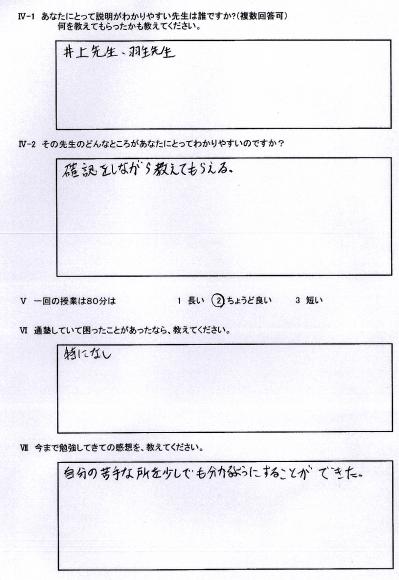 Ⅳ-1 あなたにとって説明がわかりやすい先生は誰ですか?(複数回答可)
何を教えてもらったかも教えてください。
井上先生、羽生先生
Ⅳ-2 その先生のどんなところがあなたにとってわかりやすいのですか?
確認をしながら教えてもらえる。
Ⅴ 一回の授業は80分は 1 長い 2 ちょうど良い 3 短い
Ⅵ 通塾していて困ったことがあったなら、教えてください。
特になし
Ⅶ 今まで勉強してきての感想を、教えてください。
自分の苦手な所を少しでも分かるようにすることができた。